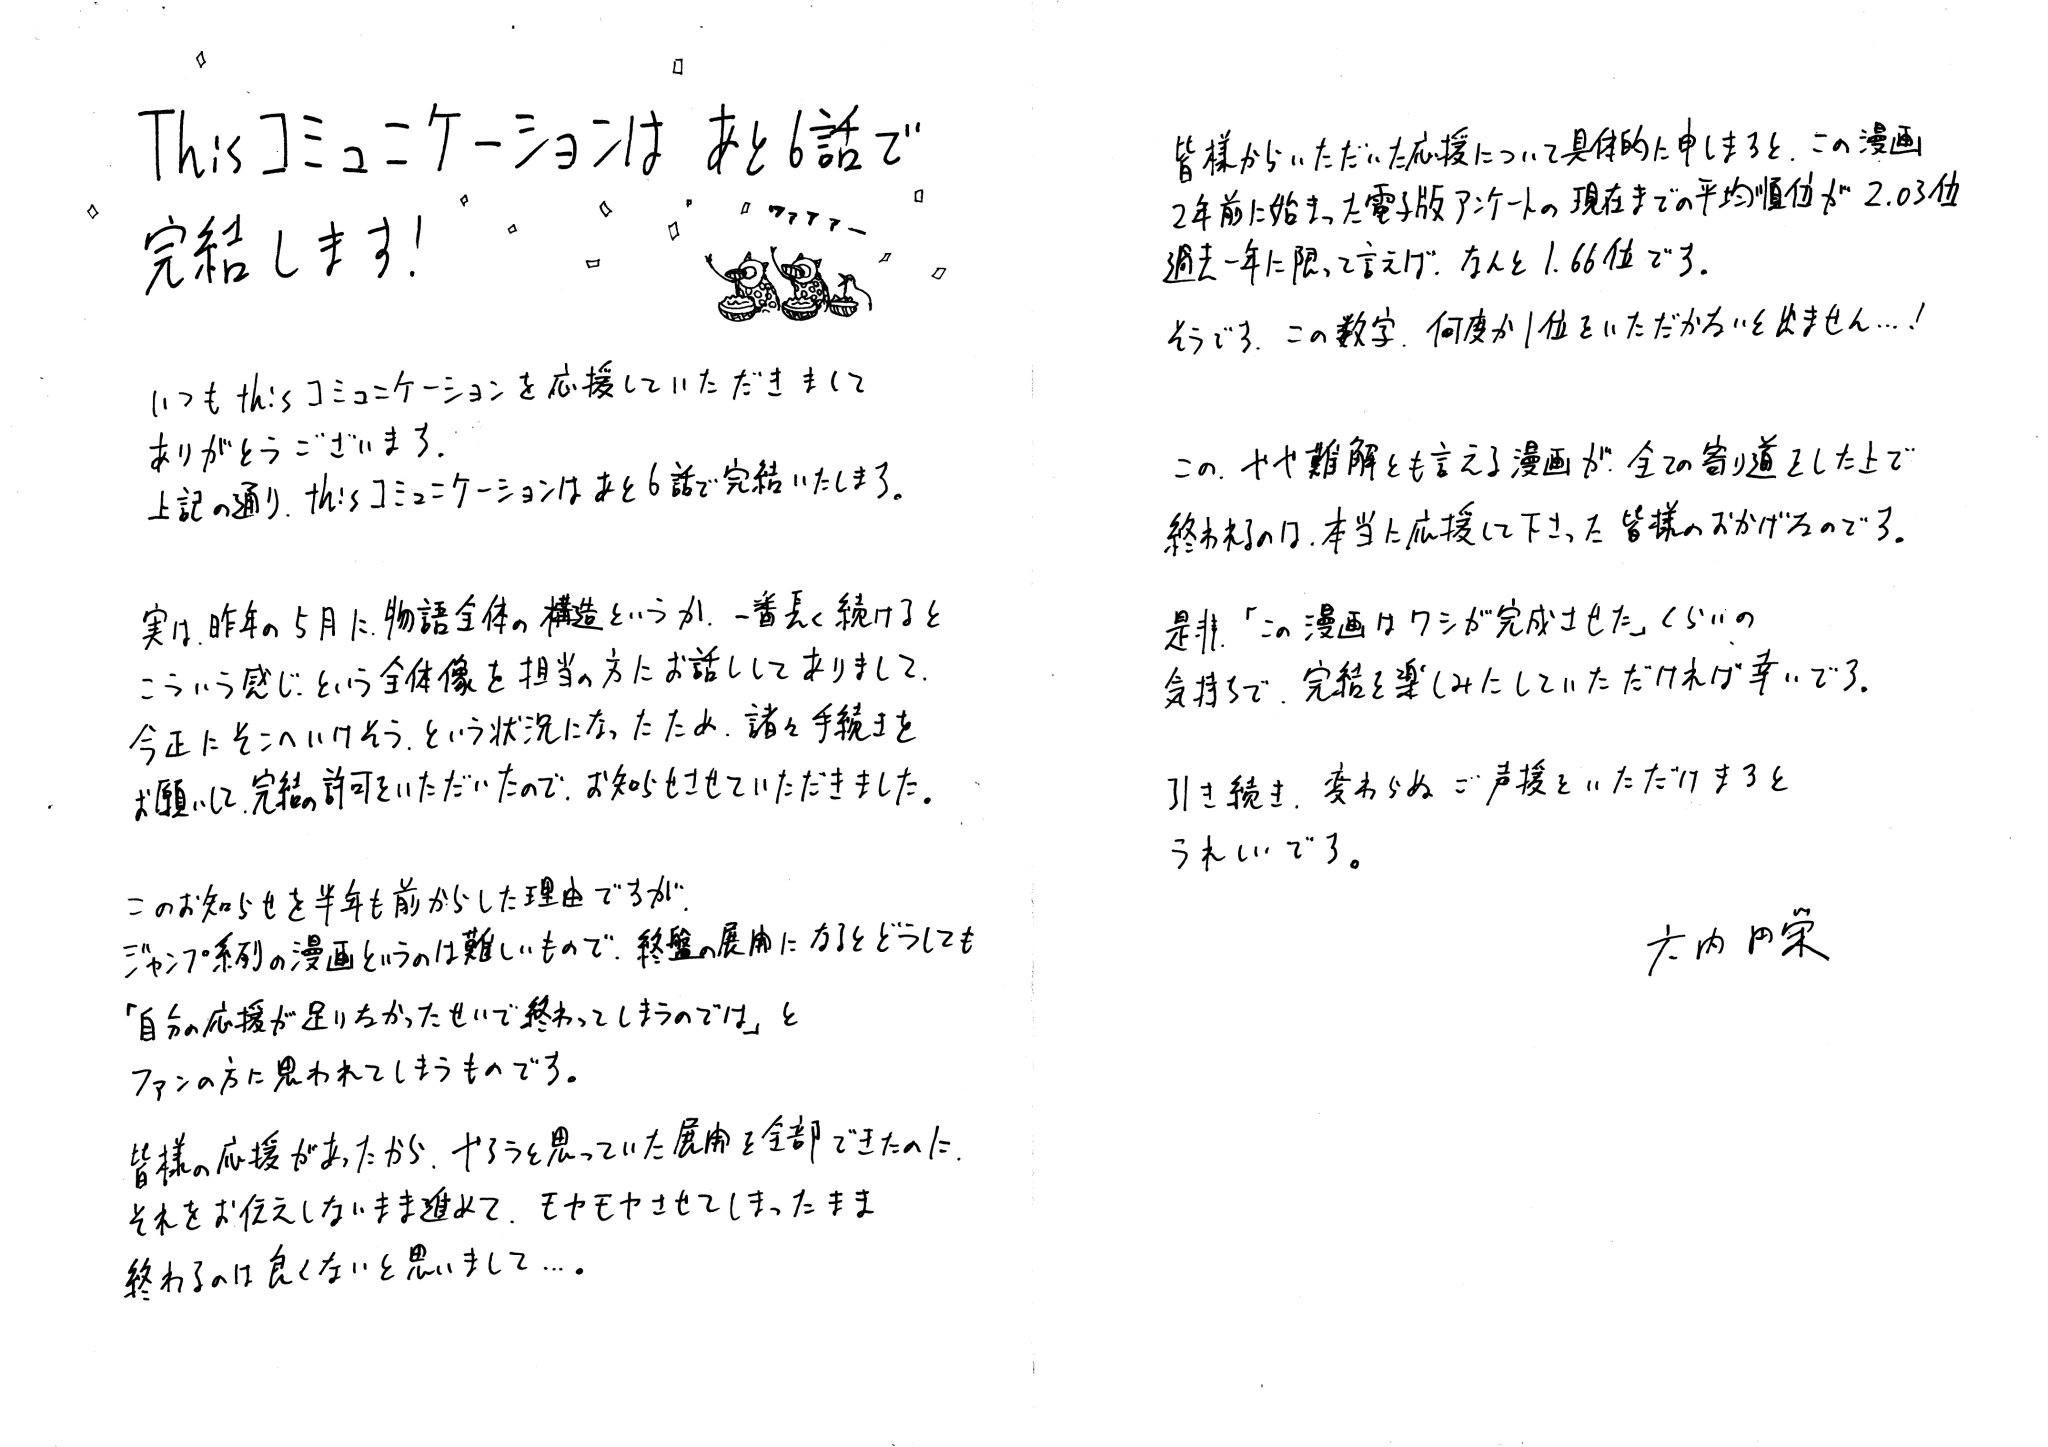 Thisコミュニケーションは あと6話で
完結します!
ワァァァァー
いつもthisコミュニケーションを応援していただきまして
ありがとうございます.
上記の通り、thisコミュニケーションはあと6話で完結いたします。
実は、昨年の5月に、物語全体の構造というか、一番長く続けると
こういう感じ、という全体像を担当の方にお話ししてありまして、
今正にそこへいけそう、という状況になったため、諸々手続きを
お願いして、完結の許可をいただいたので、お知らせさせていただきました。
このお知らせを半年も前からした理由ですが、
ジャンプ系列の漫画というのは難しいもので、終盤の展開になるとどうしても
「自分の応援が足りなかったせいで終わってしまうのでは」と
ファンの方に思われてしまうものです。
皆様の応援があったから、やろうと思っていた展開を全部できたのに、
それをお伝えしないまま進めて、モヤモヤさせてしまったまま
終わるのは良くないと思いまして…。
皆様からいただいた応援について具体的に申しますと、この漫画
2年前に始まった電子版アンケートの現在までの平均順位が2.03位
過去一年に限って言えば、なんと1.66位です。
そうです、この数字、何度か1位をいただかないと出ません…!
この、やや難解とも言える漫画が、全ての寄り道をした上で
終われるのは、本当に応援して下さった皆様のおかげなのです。
是非、「この漫画はワシが完成させた」くらいの
気持ちで、完結を楽しみにしていただければ幸いです。
引き続き、変わらぬご声援をいただけますと
うれしいです。
六内円栄